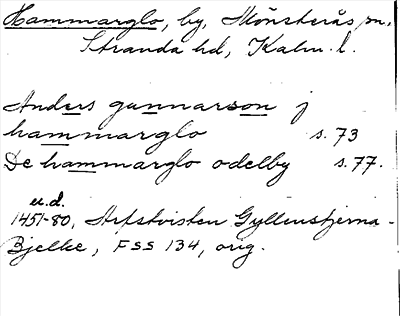 Hammarglo, by, Mönsterås sn,
Stranda hd, Kalm. l.
Anders gunnarson j
hammarglo s. 73
De hammarglo odelby s. 77.
u.d.
1451-80, Arvstvisten Gyllenstjerna-
Bjelke, FSS 134, orig.